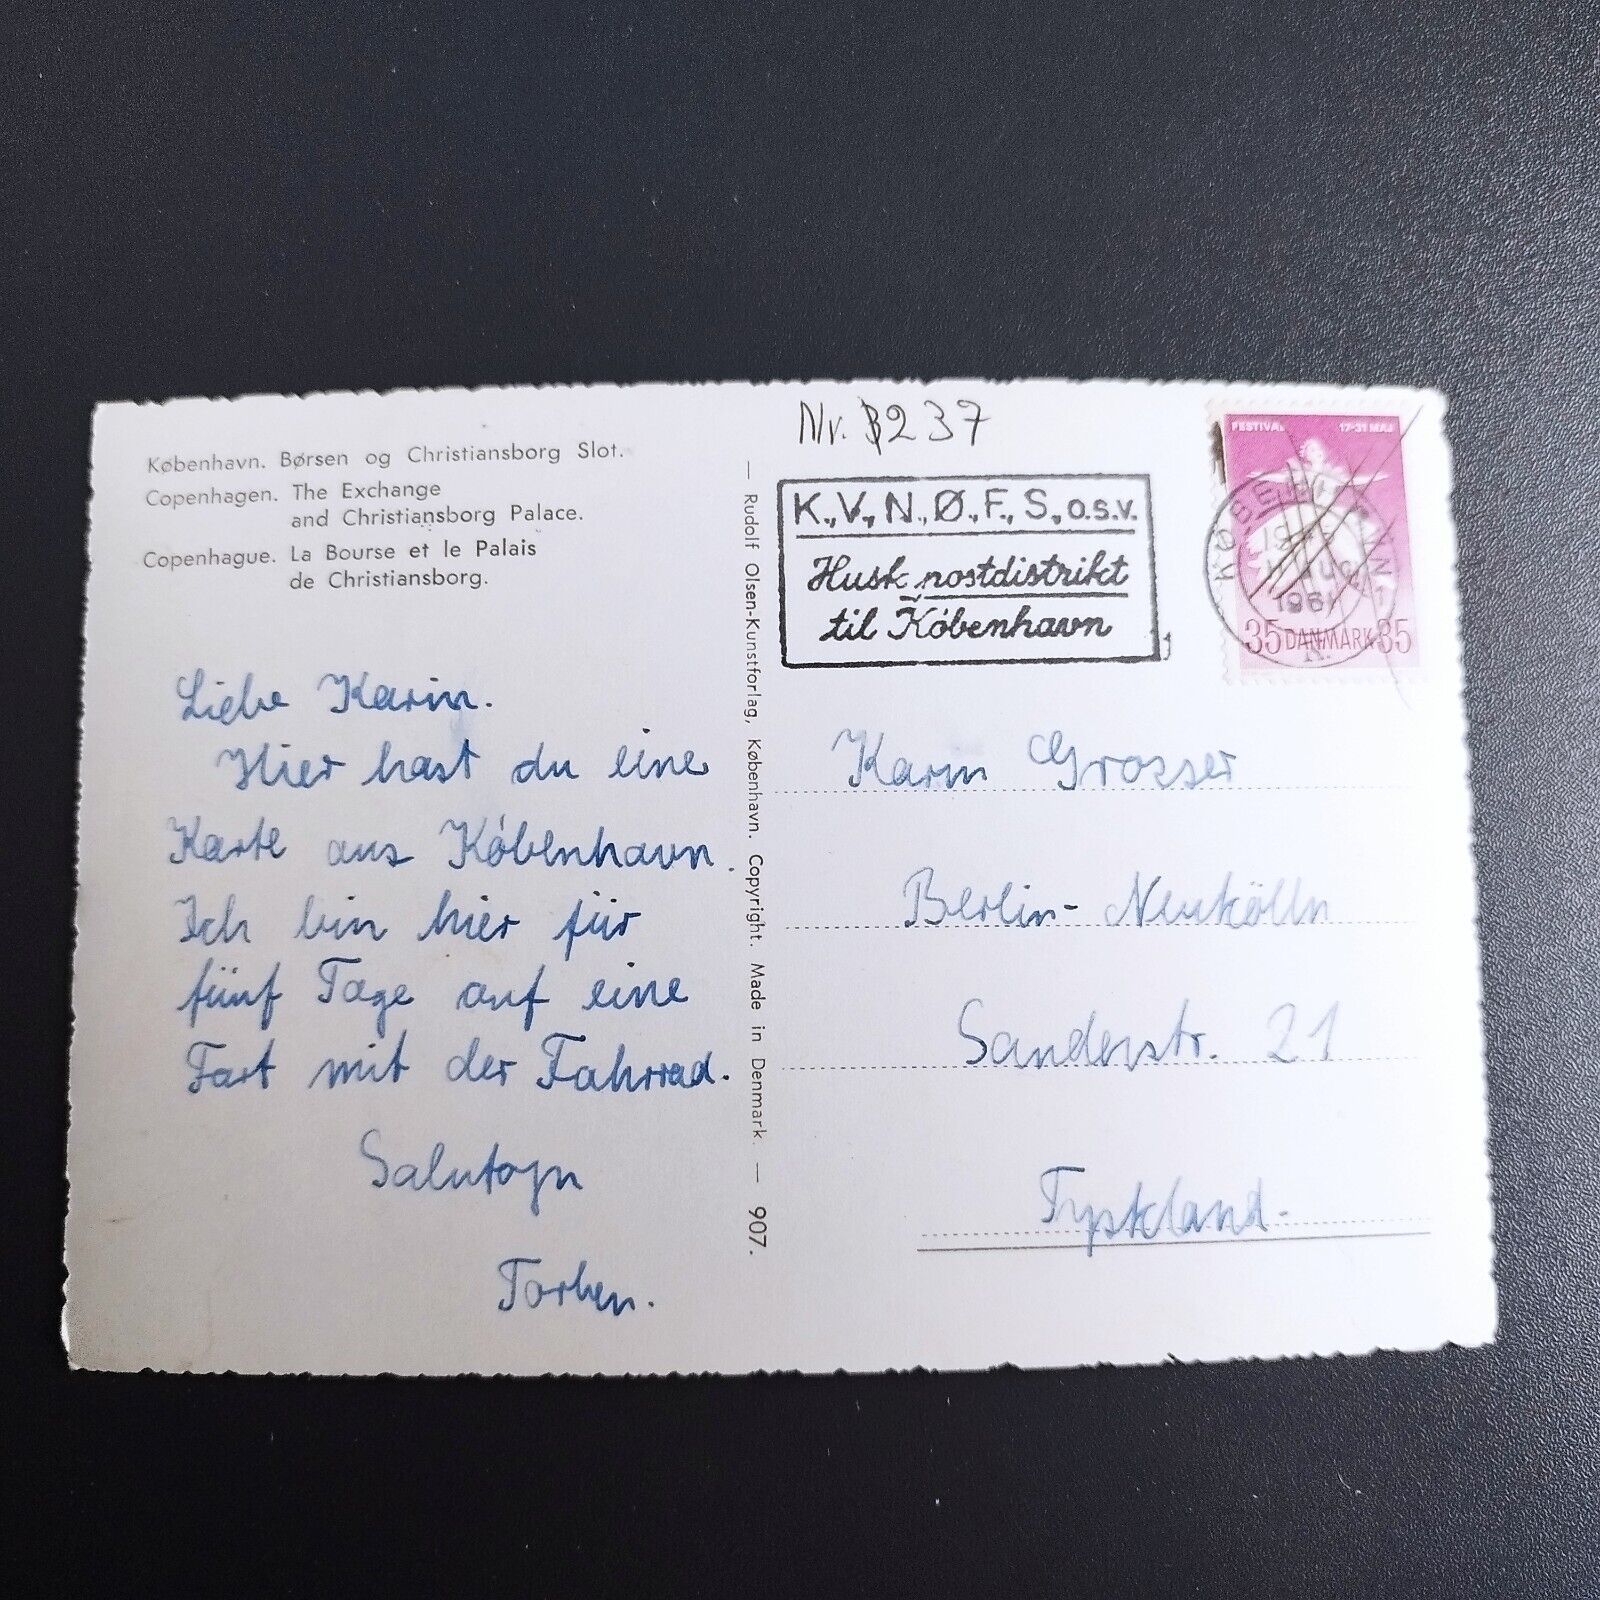 København. Børsen og Christiansborg Slot.
Copenhagen. The Exchange
and Christiansborg Palace.
Copenhague. La Bourse et le Palais
de Christiansborg.
Liebe Karin.
Hier hast du eine
Karte aus København.
Ich bin hier für
fünf Tage auf eine
Fart mit der Fahrrad.
Torben.
— Rudolf Olsen-Kunstforlag, København. Copyright. Made in Denmark. — 907.
Nr. 237
K., V., N., Ø., F., S., o.s.v.
Husk postdistrikt
til København
FESTIVAL 17-31 MAJ
KØBENHAVN
AUG.
1961
35 DANMARK 35
Karin Grosser
Berlin-Neukölln
Sanderstr. 21
Tyskland.